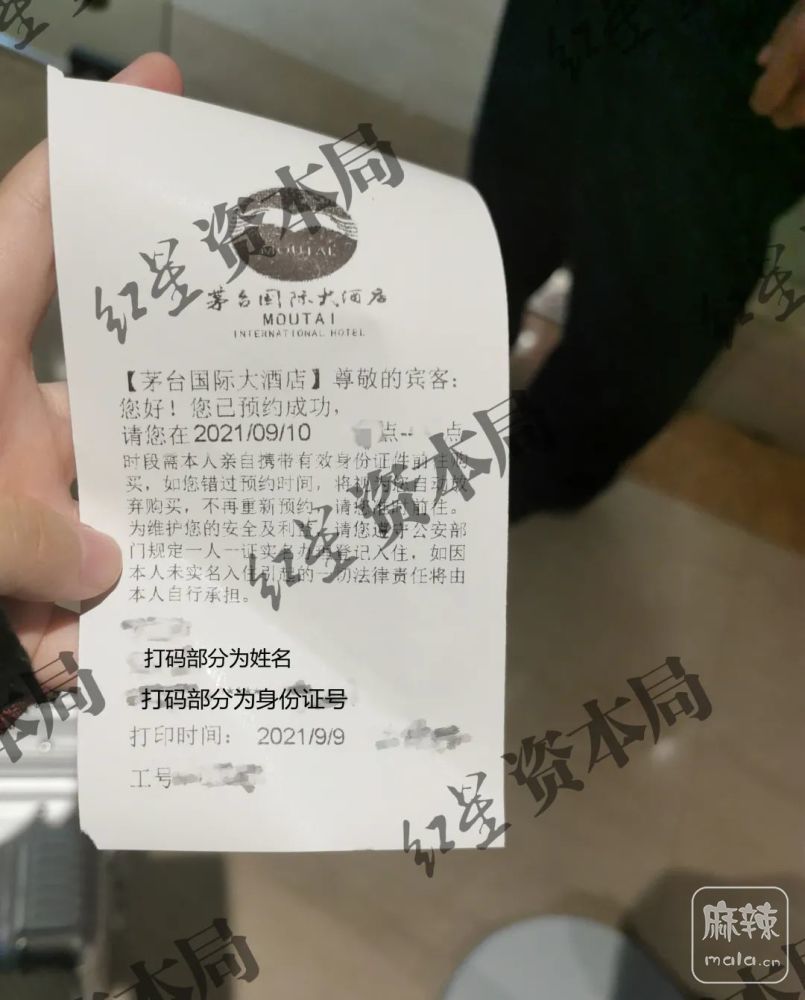 MOUTAI
茅台国际大酒店
MOUTAI
INTERNATIONAL HOTEL
【茅台国际大酒店】尊敬的宾客：
您好！您已预约成功，
请您在2021/09/10 点-- 点
时段需本人亲自携带有效身份证件前往购
买，如您错过预约时间，将视为您自动放
弃购买，不再重新预约，请您准时前往。
为维护您的安全及利益，请您遵守公安部
门规定一人一证实名办理登记入住，如因
本人未实名入住引起的一切法律责任将由
本人自行承担。
打码部分为姓名
打码部分为身份证号
打印时间： 2021/9/9
工号
红星资本局
红星资本局
红星资本局
麻辣
mala.cn